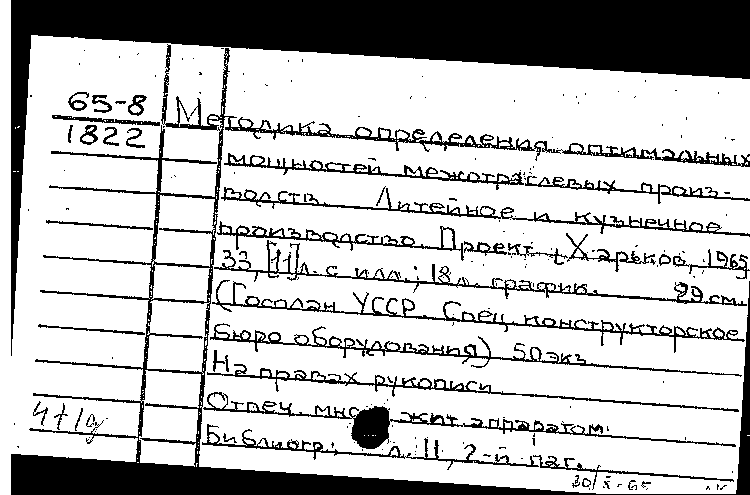 65-8
1822
Методика определения оптимальных
мощностей межотраслевых произ-
водств. Литейное и кузнечное
производство. Проект. Харьков, 1965
33, [11] л. с илл.; 18 л. график. 29 см.
(Госплан УССР. Спец. конструкторское
бюро оборудования) 50 экз.
На правах рукописи
Отпеч. множит. аппаратом.
Библиогр.: л. 11, 2-й паг.
30/X-65